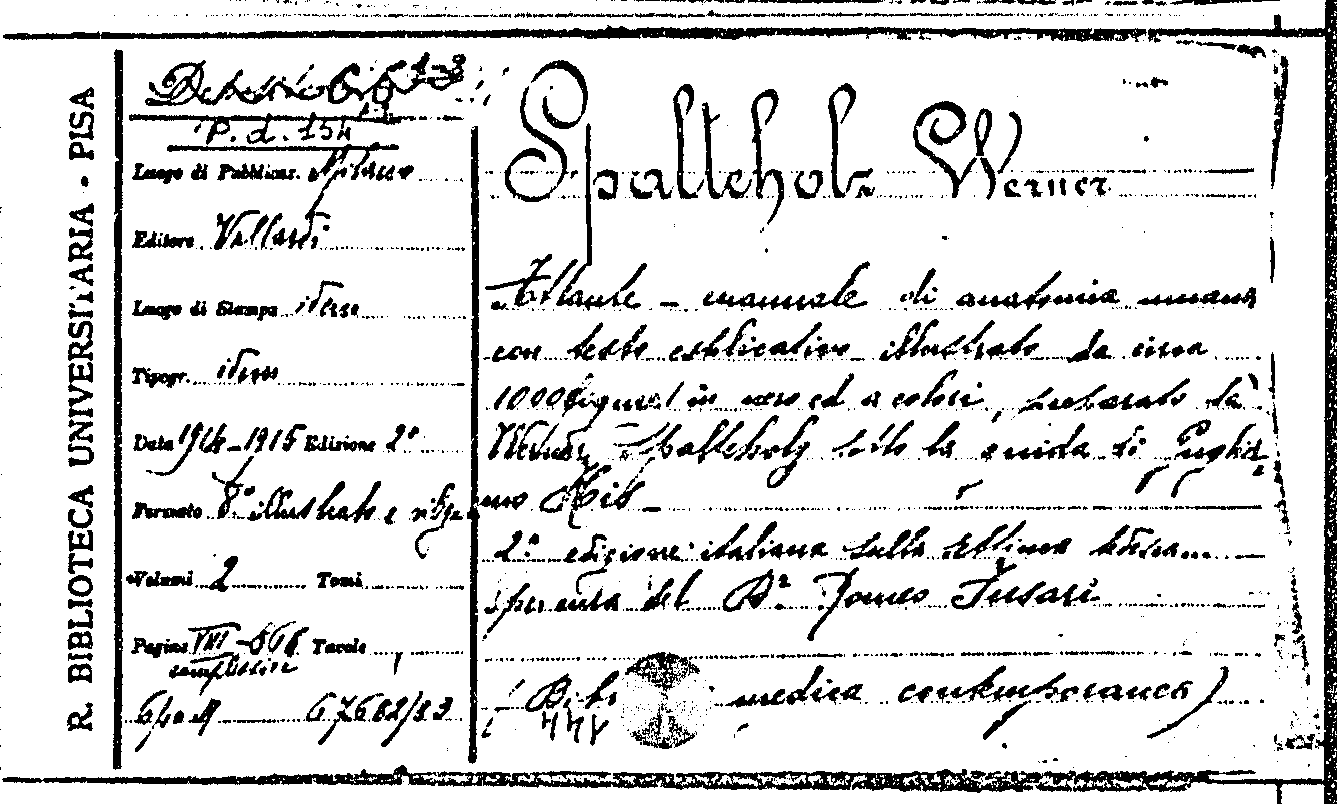 R. BIBLIOTECA UNIVERSITARIA - PISA
P. d. 154
Luogo di Pubblicaz. Milano
Editore Vallardi
Luogo di Stampa idem
Tipogr. idem
Data 1914-1915 Edizione 2ª
Formato 8° illustrato e rilegato
Volumi 2 Tomi
Pagine VIII - Tavole
complessive
67682/83
Spalteholz Werner
Atlante - manuale di anatomia umana
con testo esplicativo illustrato da circa
1000 figure in nero ed a colori, preparato da
Werner Spalteholz sotto la guida di
His -
2ª edizione italiana sulla settima tedesca
per cura del Dr. Romeo Fusari
medica contemporanea)